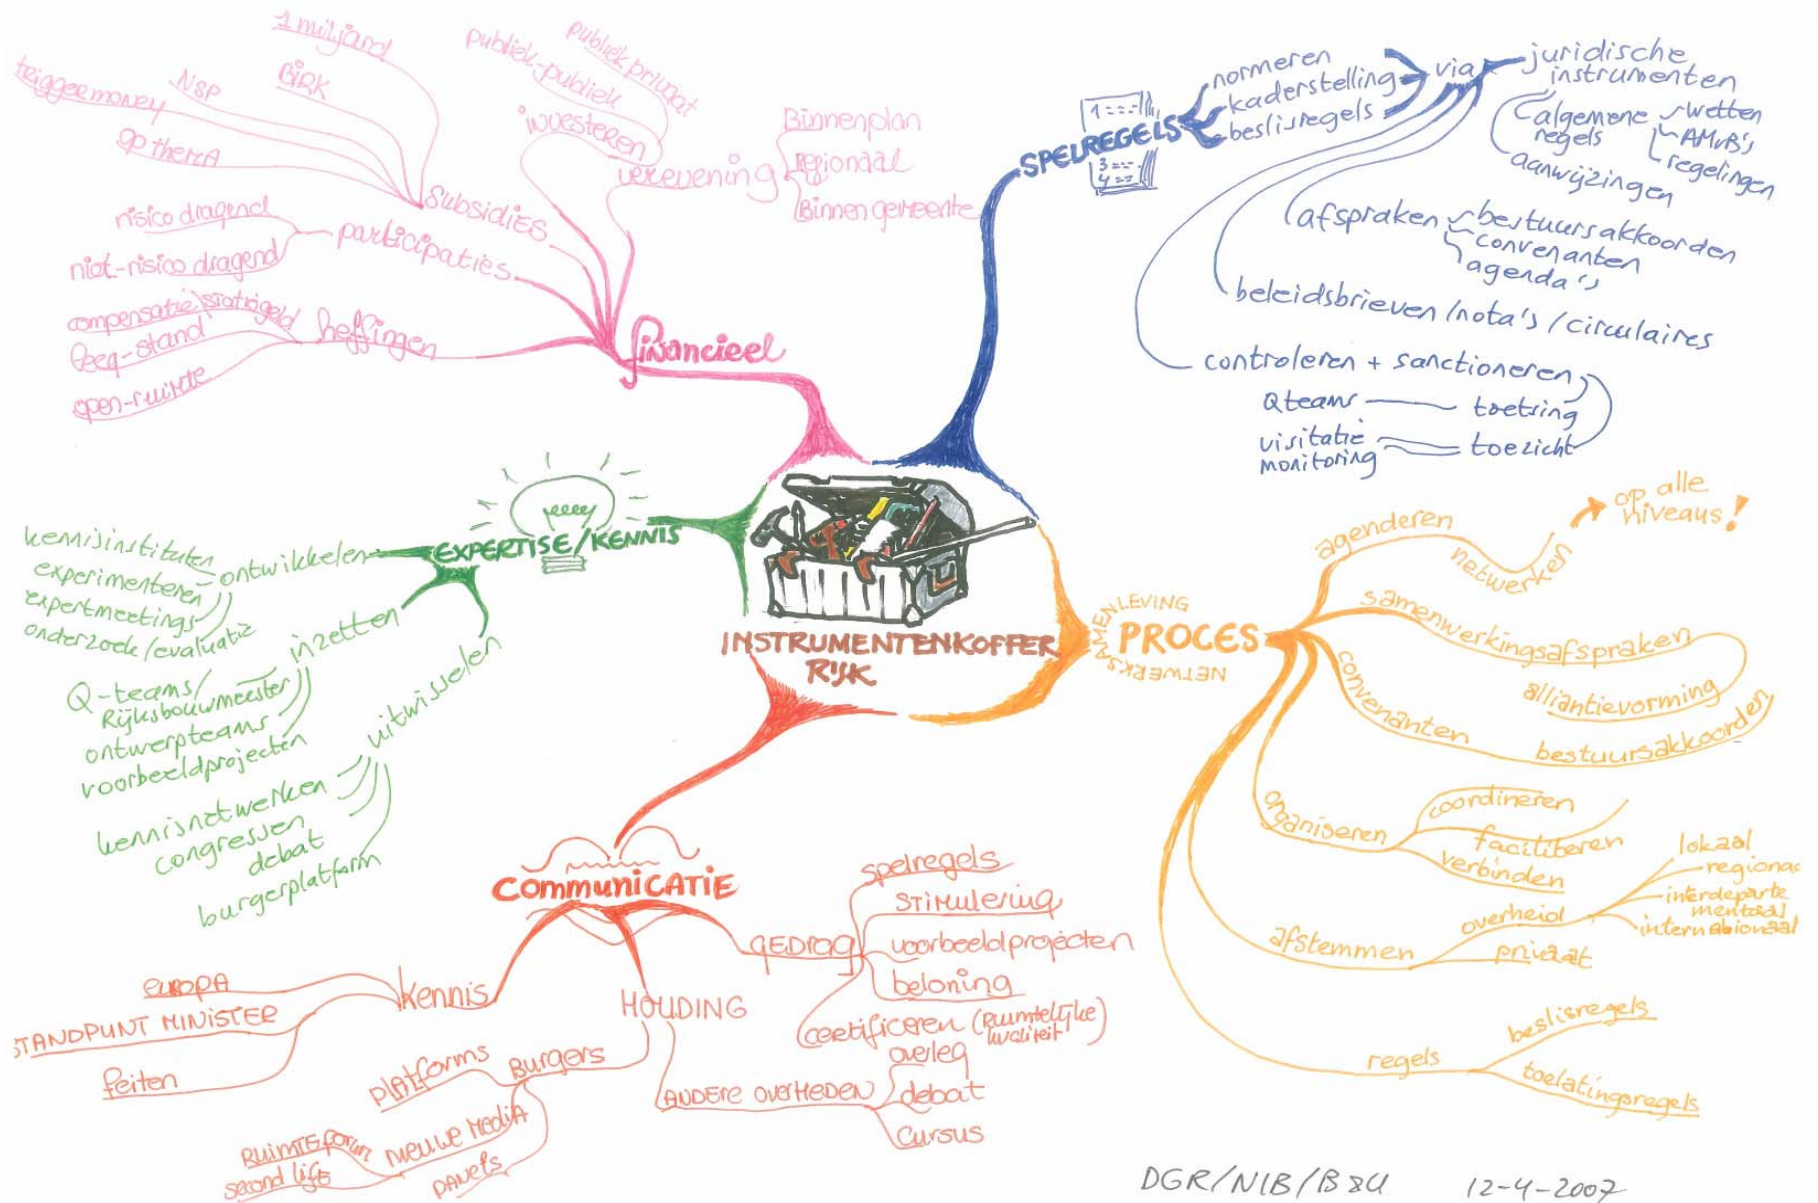 1 miljard
BIRK
NSP
triggermoney
go thema
subsidies
publiek privaat
publiek-publiek
investeren
verevening
Binnenplan
Regionaal
Binnen gemeente
participaties
risico dragend
niet-risico dragend
heffingen
compensatie/statiegeld
leeg-stand
open-ruimte
financieel
SPELREGELS
1
3
4
normeren
kaderstelling
beslisregels
via
juridische
instrumenten
algemene
regels
wetten
AMvB's
regelingen
aanwijzingen
afspraken
bestuursakkoorden
convenanten
agenda's
beleidsbrieven/nota's/circulaires
controleren + sanctioneren
Qteams
toetsing
visitatie
monitoring
toezicht
EXPERTISE/KENNIS
ontwikkelen
kennisinstituten
experimenteren
expertmeetings
onderzoek/evaluatie
inzetten
Q-teams/
Rijksbouwmeester
ontwerpteams
voorbeeldprojecten
uitwisselen
kennisnetwerken
congressen
debat
burgerplatform
INSTRUMENTENKOFFER
RIJK
NETWERKSAMENLEVING
PROCES
agenderen
netwerken
op alle
niveaus!
samenwerkingsafspraken
alliantievorming
convenanten
bestuursakkoorden
organiseren
coordineren
faciliteren
verbinden
afstemmen
overheid
lokaal
regionaa
interdeparte
mentaal
internationaal
privaat
regels
beslisregels
toelatingsregels
COMMUNICATIE
kennis
EUROPA
STANDPUNT MINISTER
feiten
HOUDING
Burgers
platforms
nieuwe media
Ruimteforum
second life
panels
ANDERE OVERHEDEN
overleg
debat
cursus
GEDRAG
spelregels
stimulering
voorbeeldprojecten
beloning
certificeren (Ruimtelijke
kwaliteit)
DGR/NIB/B&U 12-4-2007